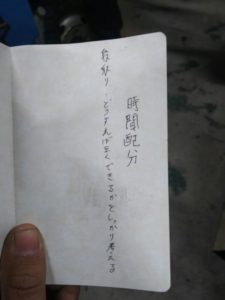 時間配分
段取り・どうすれば早くできるかをしっかり考える